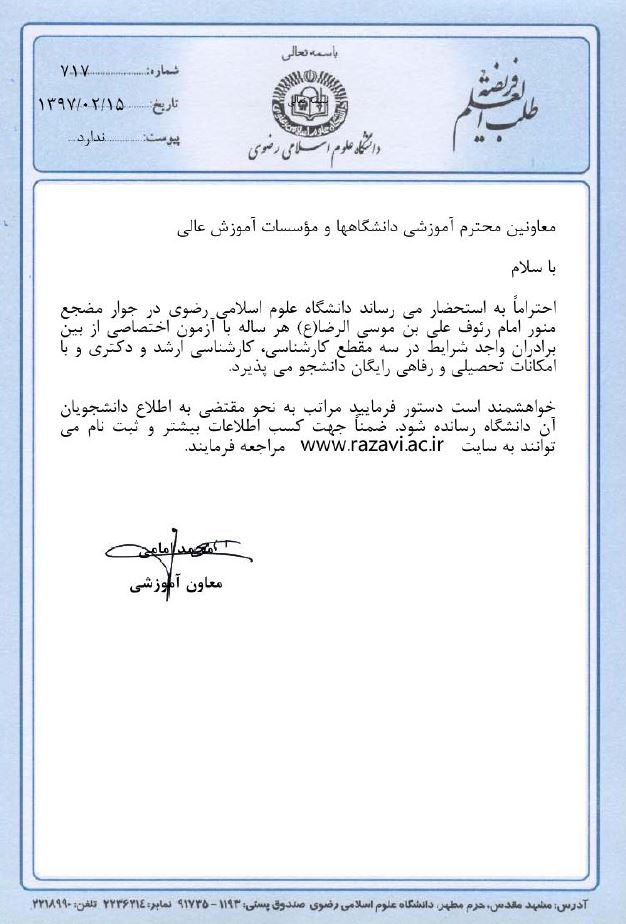 باسمه تعالی
طلب العلم فریضة
دانشگاه علوم اسلامی رضوی
شماره: ۷۱۷
تاریخ: ۱۳۹۷/۰۲/۱۵
پیوست: ندارد
معاونین محترم آموزشی دانشگاهها و مؤسسات آموزش عالی
با سلام
احتراماً به استحضار می رساند دانشگاه علوم اسلامی رضوی در جوار مضجع
منور امام رئوف علی بن موسی الرضا(ع) هر ساله با آزمون اختصاصی از بین
برادران واجد شرایط در سه مقطع کارشناسی، کارشناسی ارشد و دکتری و با
امکانات تحصیلی و رفاهی رایگان دانشجو می پذیرد.
خواهشمند است دستور فرمایید مراتب به نحو مقتضی به اطلاع دانشجویان
آن دانشگاه رسانده شود. ضمناً جهت کسب اطلاعات بیشتر و ثبت نام می
توانند به سایت www.razavi.ac.ir مراجعه فرمایند.
محمد امامی
معاون آموزشی
آدرس: مشهد مقدس، حرم مطهر، دانشگاه علوم اسلامی رضوی صندوق پستی: ۱۱۹۳ - ۹۱۷۳۵ نمابر: ۲۲۳۶۲۱۴ تلفن: ۲۲۱۸۹۹۰